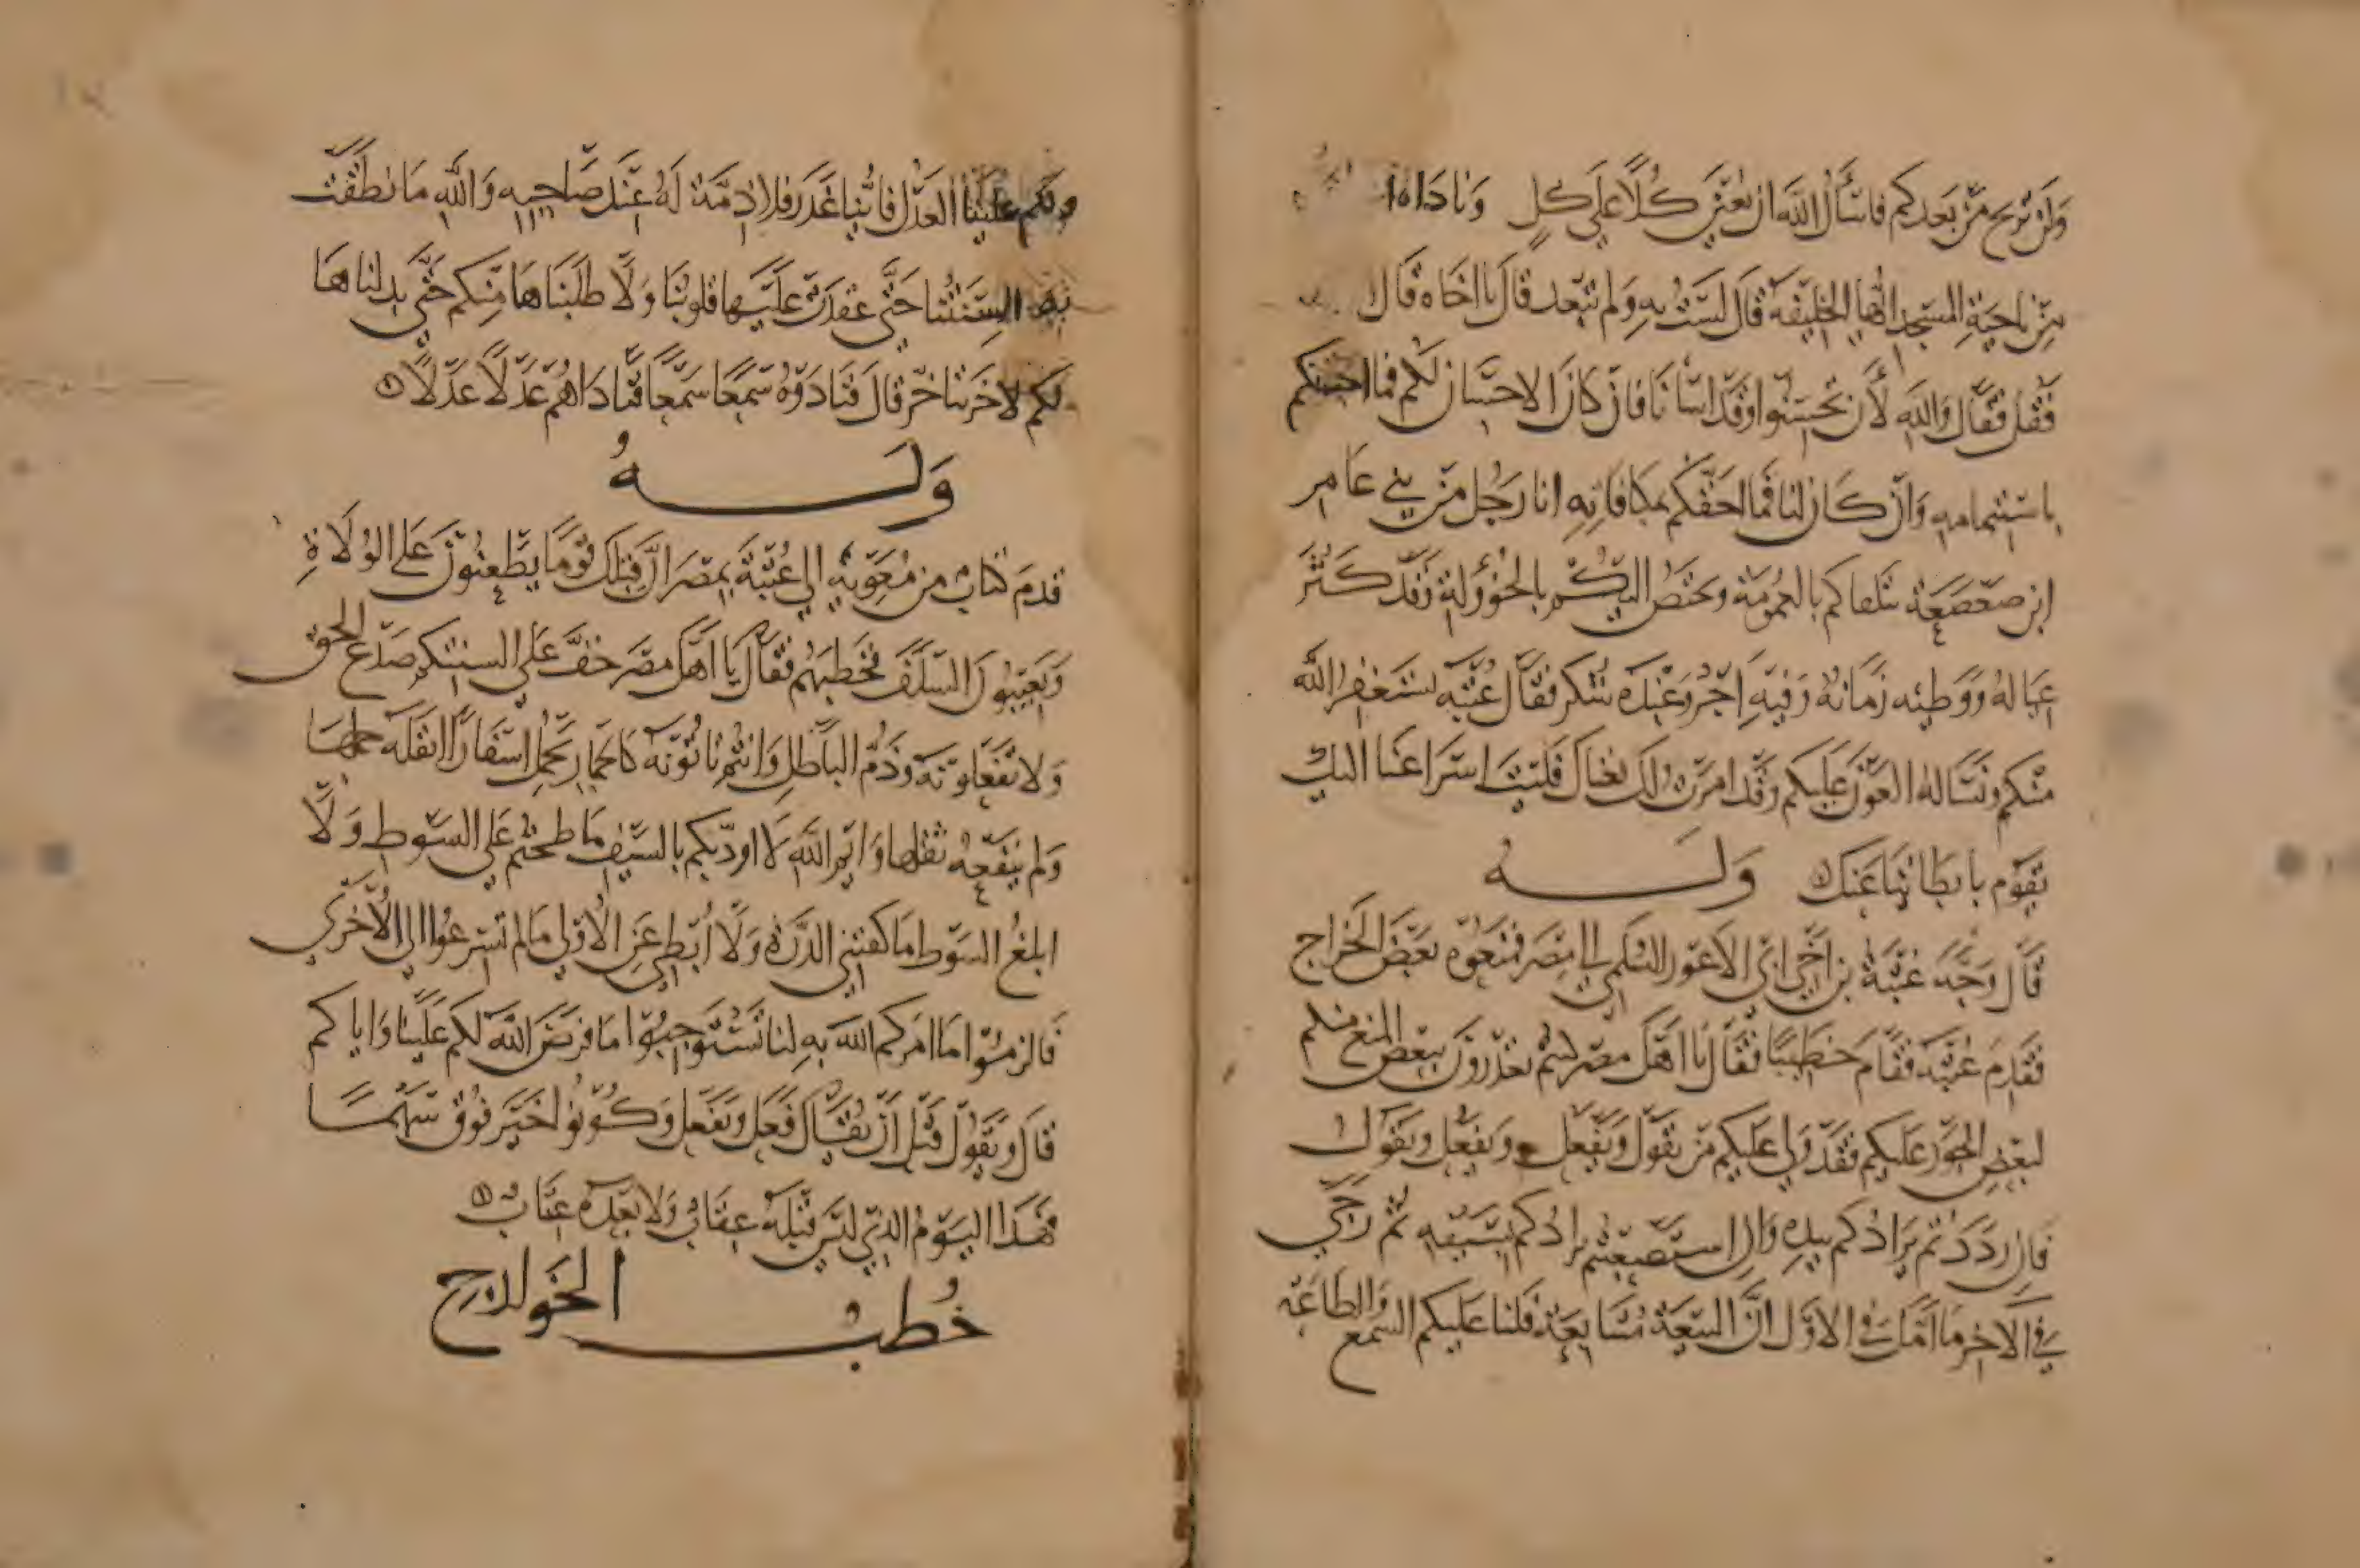 ولن تريح من بعدكم فاسأل الله ان يعين كلا على كل وناداه
من ناحية المسجد ايها الخليفة قال لست به ولم تبعد قال يا اخاه قال
فقل فقال والله لأن تحسنوا وقد اسأنا فان كان الاحسان لكم فما احقكم
باستتمامه وان كان لنا فما احقكم بمكافاته انا رجل من بني عامر
ابن صعصعة تلقاكم بالعمومة ويختص اليكم بالخؤولة وقد كثر
عياله ووطيه زمانه وفيه اجر وعنده شكر فقال عتبة نستغفر الله
منكم ونساله العون عليكم وقد امرت لك بغناك فليت اسراعنا اليك
يقوم بابطائنا عنك وله
قال وجه عتبة بن اخي ابي الاعور السلمي الى مصر فمنعوه بعض الخراج
فقدم عتبة فقام خطيبا فقال يا اهل مصر لستم تعذرون ببعض المنع منكم
لبعض الجور عليكم فقد ولي عليكم من يقول ويفعل ويفعل ويقول
فان رددتم يرادكم بيده وان استصعبتم يرادكم بسيفه ثم رجى
في الاخر ما امل في الاول ان البيعة متتابعة فلنا عليكم السمع والطاعة
ولكم علينا العدل فاينا غدر فلا ذمة له عند صاحبه والله ما نطقت
بها السنتنا حتى عقدت عليها قلوبنا ولا طلبناها منكم حتى بذلناها
لكم لاخرنا خر قال فنادوه سمعا سمعا فناداهم عدلا عدلا
وله
قدم كتاب من معوية الى عتبة بمصر ان قبلك قوما يطعنون على الولاة
ويعيبون السلف فخطبهم فقال يا اهل مصر خف على السنتكم صدع الحق
ولا تفعلونه وذم الباطل وانتم تاتونه كالحمار يحمل اسفارا اثقله حملها
ولم ينفعه ثقلها وايم الله لا اودبكم بالسيف ما طحتم على السوط ولا
ابلغ السوط ما كفتني الدرة ولا أبطي عن الاولى ما لم تسرعوا الى الاخرى
فالزموا ما امركم الله به لنا تستوجبوا ما فرض الله لكم علينا واياكم
قال ويقول قبل ان يقال فعل ويفعل وكونوا خير قوق سهما
فهذا اليوم الذي ليس قبله عقاب ولا بعده عتاب
خطب الخوارج